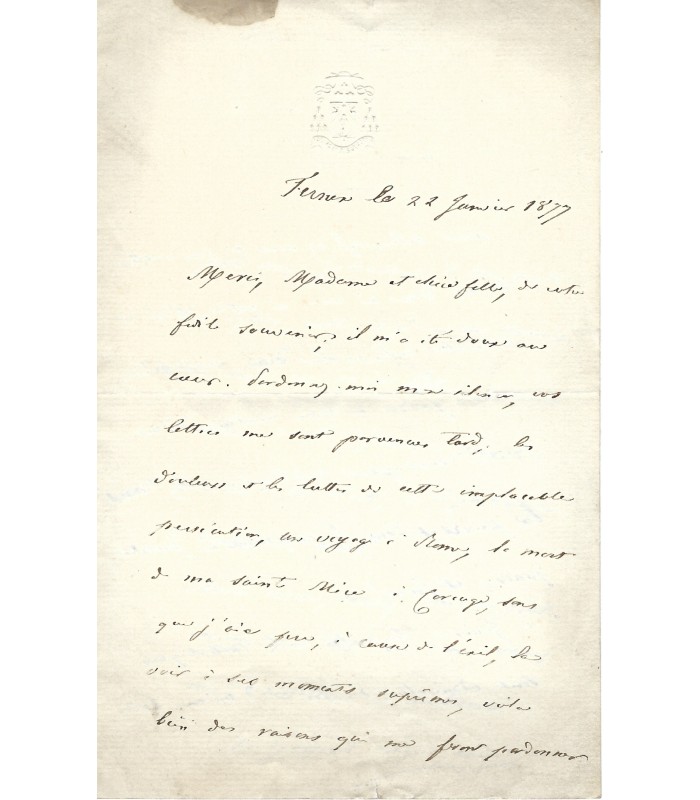 Ferney le 22 Janvier 1877
Merci, Madame et chère fille, de votre
fidèle souvenir; il m'a été doux au
cœur. Pardonnez-moi mon silence, vos
lettres me sont parvenues tard; les
douleurs et les luttes de cette implacable
persécution, un voyage à Rome, la mort
de ma sainte Mère à Carouge, sans
que j'aie pu, à cause de l'exil, la
voir à ses moments suprêmes, voilà
bien des raisons qui me feront pardonner